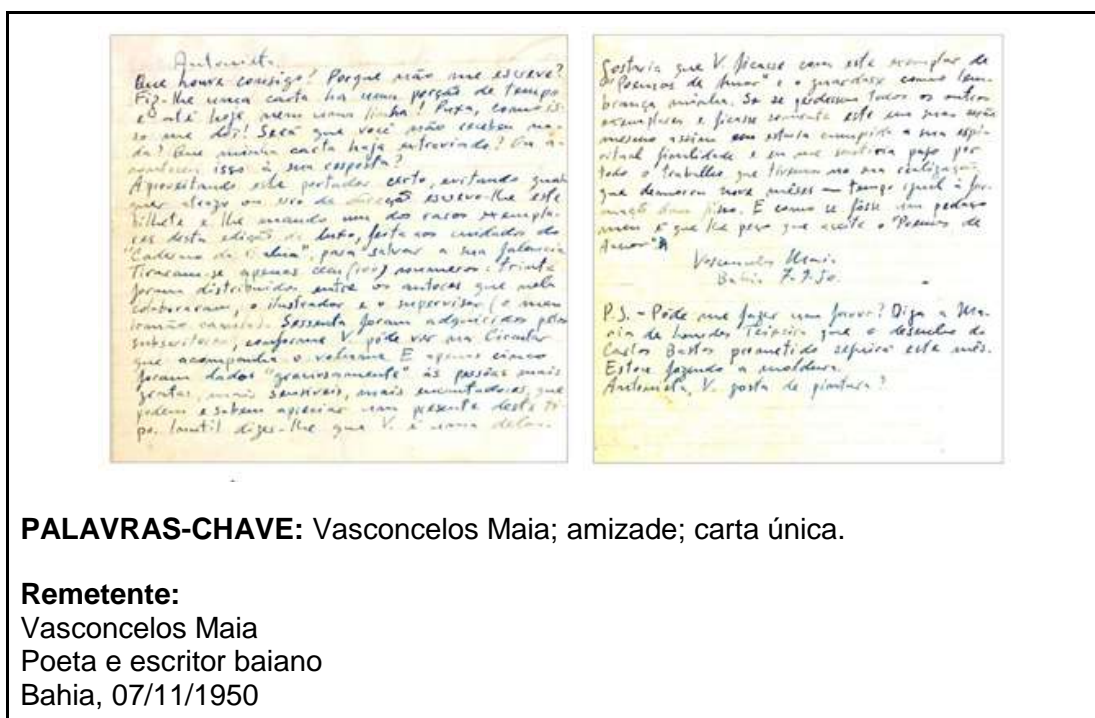 Antonieta,
Que houve consigo? Porque não me escreve?
Fiz-lhe uma carta ha uma porção de tempo
e até hoje, nem uma linha! Puxa, como is-
so me dói! Será que você não recebeu na-
da? Que minha carta haja extraviado? Ou a-
conteceu isso à sua resposta?
Aproveitando este portador certo, evitando qual
quer atrazo ou erro de direção escrevo-lhe este
bilhete e lhe mando um dos raros exempla-
res desta edição de luxo, feita aos cuidados do
"Caderno da Bahia", para salvar a sua falencia
Tiraram-se apenas cem (100) numeros: trinta
foram distribuidos entre os autores que nela
colaboraram, o ilustrador e o supervisor (o meu
irmão
Sessenta foram adquiridos pelos
subscritores, conforme V. póde ver na Circular
que acompanha o volume. E apenas cinco
foram dados "graciosamente" ás pessôas mais
gratas, mais sensiveis, mais encantadoras, que
podem e sabem apreciar um presente deste ti-
po. Inutil dizer-lhe que V. é uma delas.
Gostaria que V. ficasse com este exemplar de
"Poemas de Amor" e o guardasse como lem-
brança minha. Se se perdessem todos os outros
exemplares e ficasse somente este em suas mãos
mesmo assim estaria cumprida a sua espi-
ritual finalidade e eu me sentiria pago por
todo o trabalho que tivemos na sua realização
que demorou nove mêses — tempo igual à for-
mação
E como se fôsse um pedaço
meu é que lhe peço que aceite o "Poemas de
Amor"
Vasconcelos Maia
Bahia 7-7-50.
P.S. - Póde me fazer um favor? Diga a Ma-
ria de Lourdes Teixeira que o desenho do
Carlos Bastos prometido seguirá este mês.
Estou fazendo a moldura.
Antonieta, V. gosta de pintura?
PALAVRAS-CHAVE: Vasconcelos Maia; amizade; carta única.
Remetente:
Vasconcelos Maia
Poeta e escritor baiano
Bahia, 07/11/1950